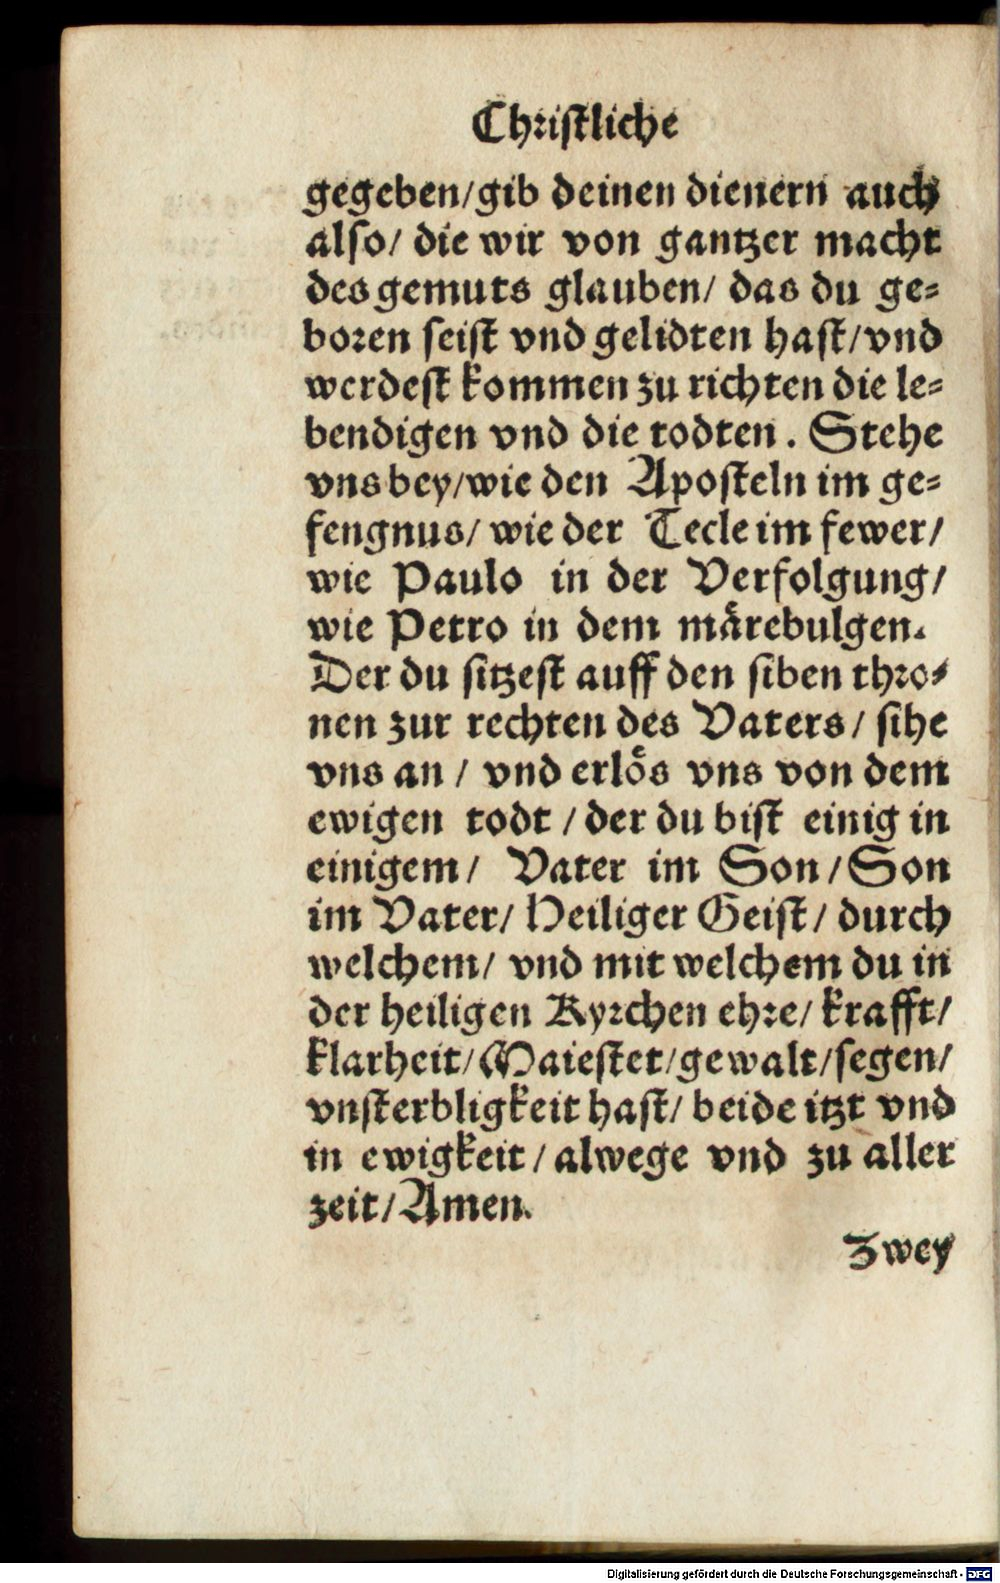 Christliche
gegeben/gib deinen dienern auch
also/ die wir von gantzer macht
des gemuts glauben/ das du ge⸗
boren seist vnd gelidten hast/vnd
werdest kommen zu richten die le⸗
bendigen vnd die todten. Stehe
vns bey/wie den Aposteln im ge⸗
fengnus/ wie der Tecle im fewer/
wie Paulo in der Verfolgung/
wie Petro in dem märebulgen.
Der du sitzest auff den siben thro⸗
nen zur rechten des Vaters/ sihe
vns an/ vnd erlös vns von dem
ewigen todt/ der du bist einig in
einigem/ Vater im Son/Son
im Vater/ Heiliger Geist/ durch
welchem/ vnd mit welchem du in
der heiligen Kyrchen ehre/ krafft/
klarheit/Maiestet/gewalt/segen/
vnsterbligkeit hast/ beide itzt vnd
in ewigkeit/ alwege vnd zu aller
zeit/Amen.
Zwey
Digitalisierung gefördert durch die Deutsche Forschungsgemeinschaft - DFG